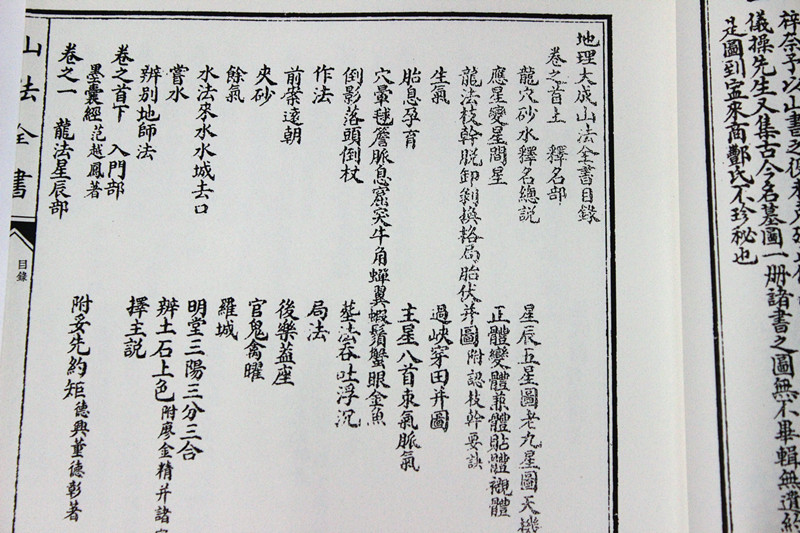 梓奈予以山書之
儀操先生又集古今名墓圖一册諸書之圖無不畢輯無遺
是圖到寔來商鄭氏不珍秘也
地理大成山法全書目錄
卷之首上 釋名部
龍穴砂水釋名總説 星辰五星圖老九星圖天機
應星變星閒星 正體變體兼體貼體襯體
龍法枝幹脱卸剝換格局胎伏并圖附認枝幹要訣
生氣 過峽穿田并圖
胎息孕育 主星八首束氣脈氣
穴暈毬簷脈息窟突牛角蟬翼蝦鬚蟹眼金魚
倒影落頭倒杖 塟法吞吐浮沉
作法 局法
前案遠朝 後樂葢座
夾砂 官鬼禽曜
餘氣 羅城
水法來水水城去口 明堂三陽三分三合
嘗水 辨土石土色附廖金精并諸
辨别地師法 擇主説
卷之首下 入門部
墨囊經范越鳳著 附安先約矩德興董德彰著
卷之一 龍法星辰部
山法全書
目錄